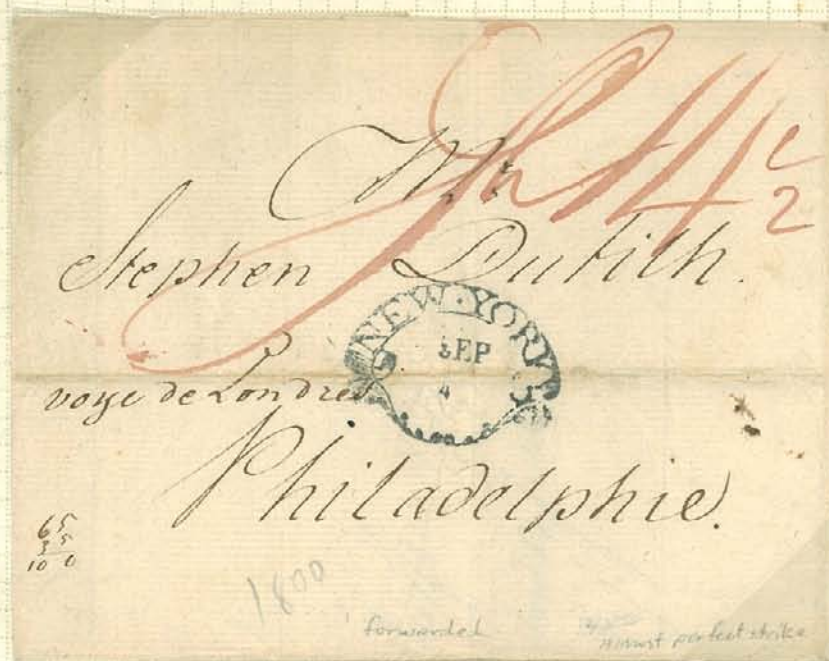 Sh 14 1/2
Mr.
Stephen Dutilh.
NEW-YORK
SEP
4
voye de Londres
Philadelphie.
65
35
10 0
1800
forwarded
almost perfect strike